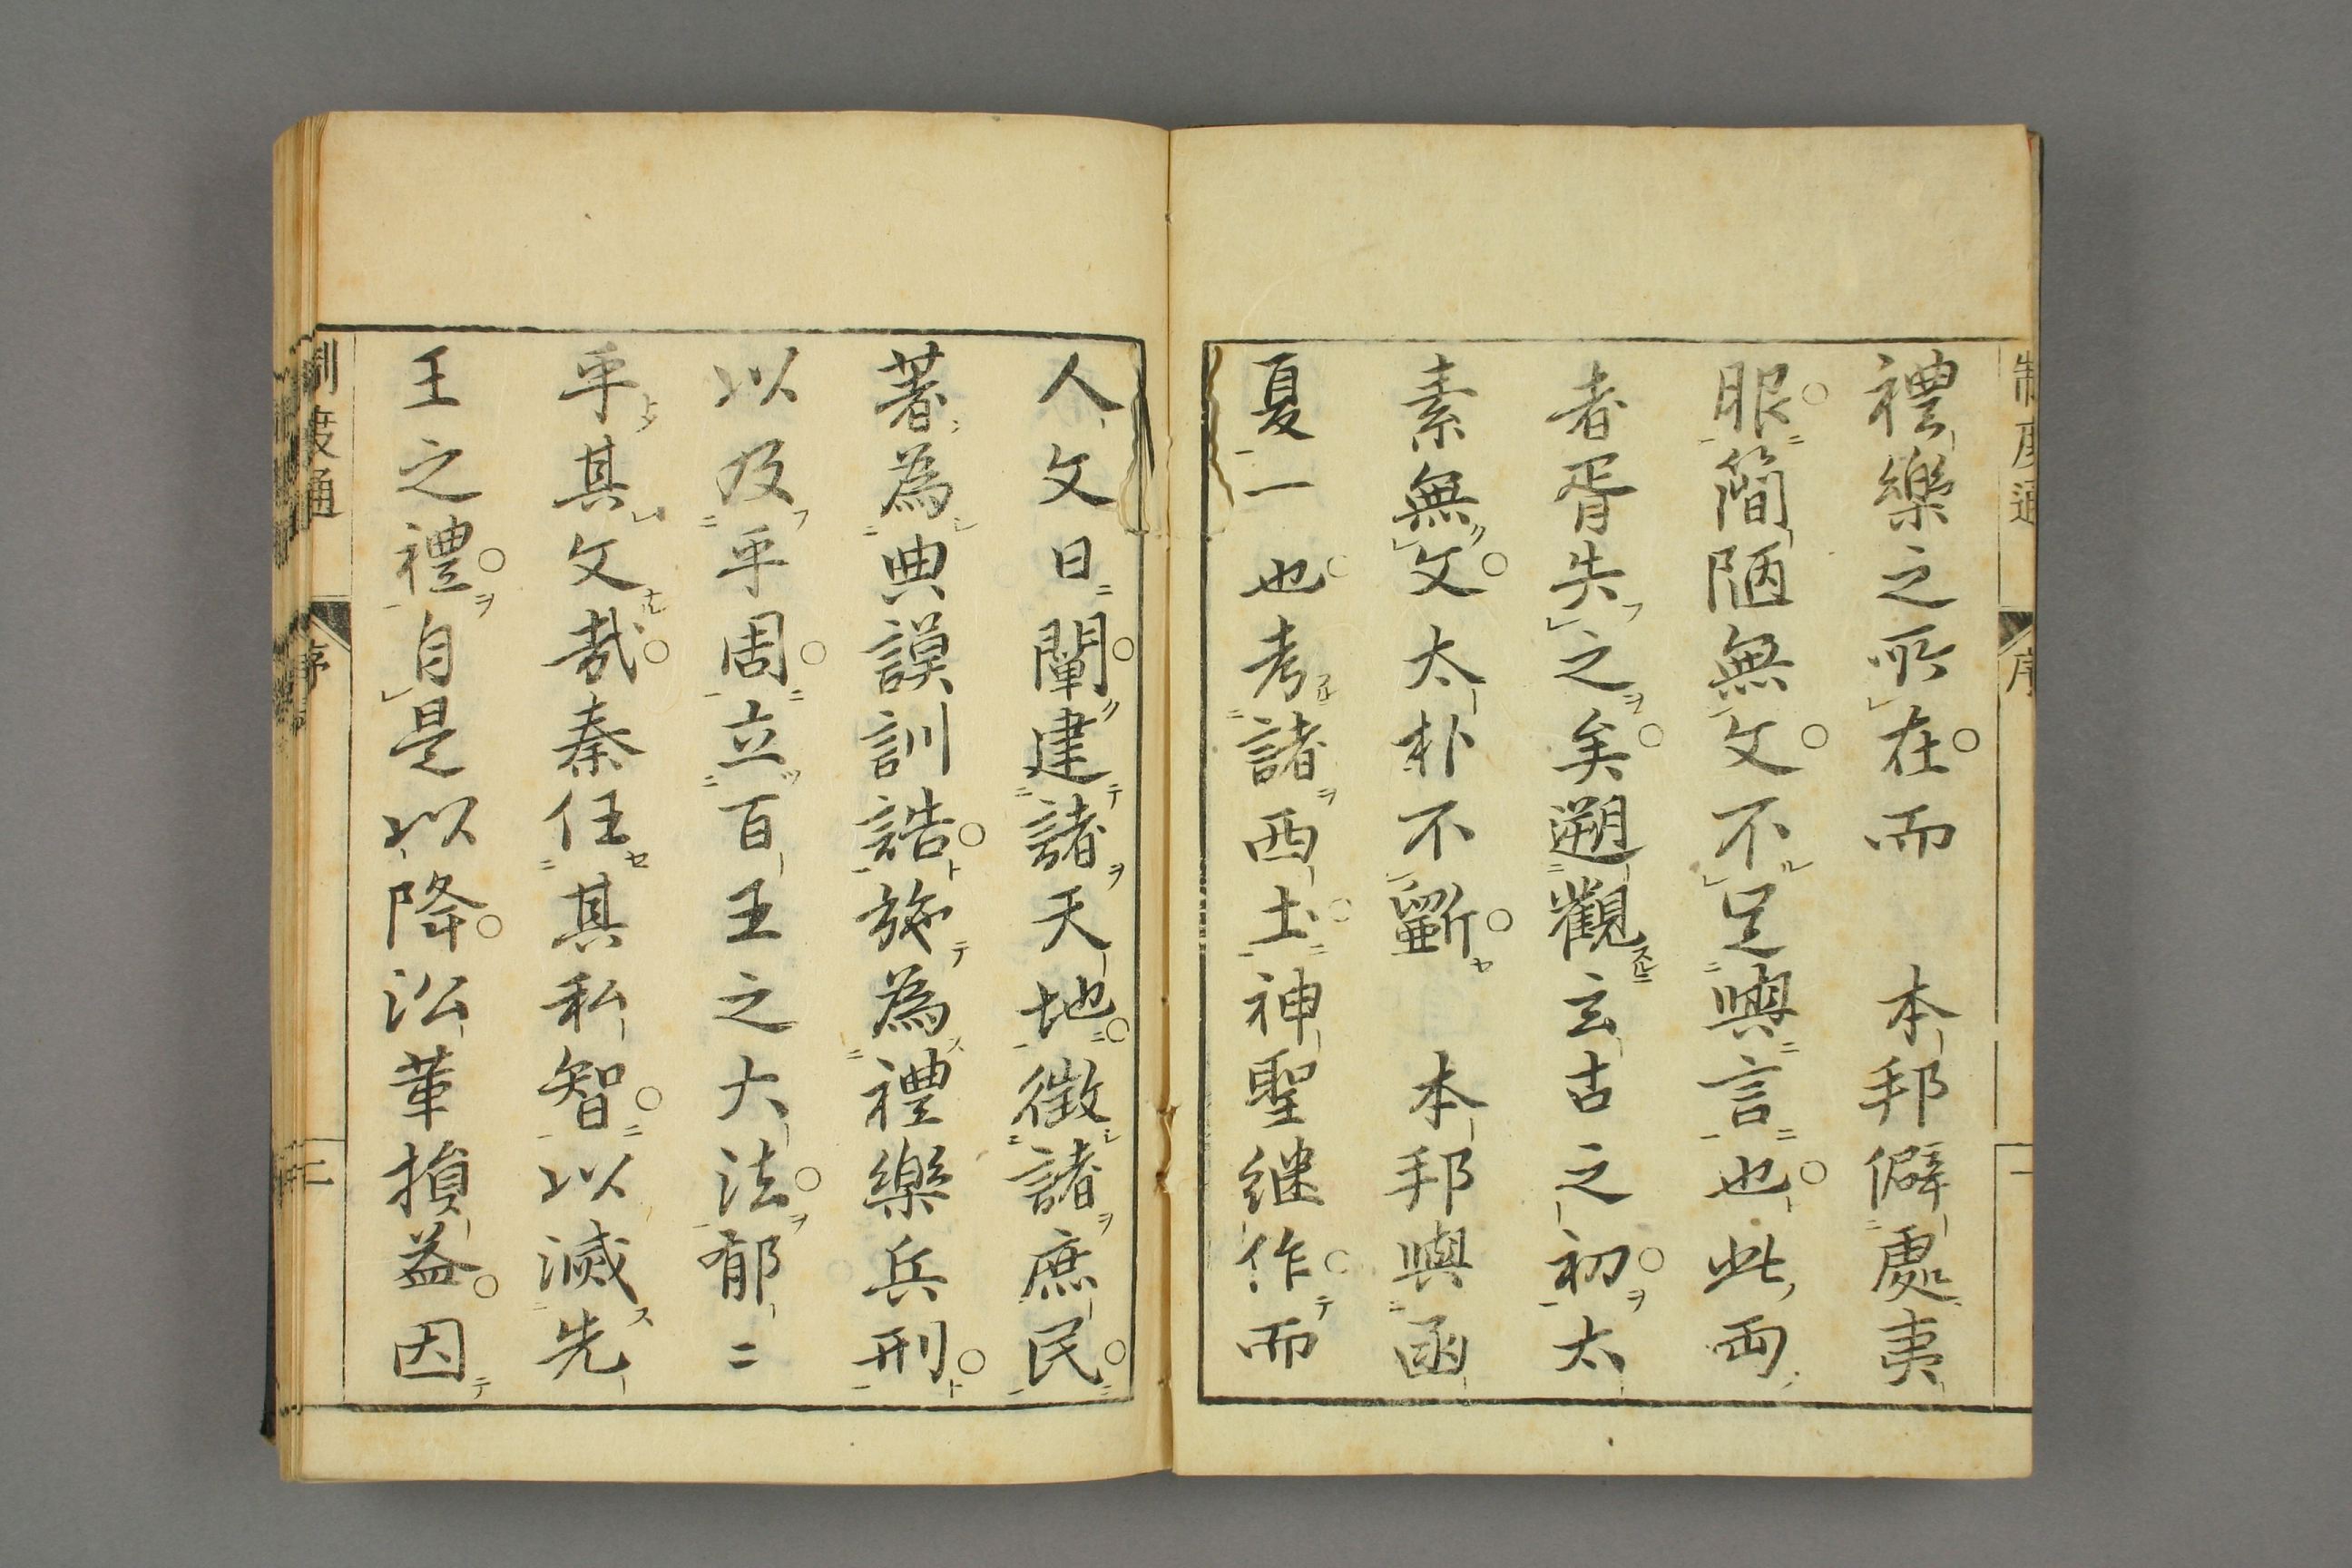 禮樂之所在而　本邦僻處夷
服簡陋無文不足與言也此両
者胥失之矣遡觀玄古之初太
素無文太朴不斵　本邦與函
夏一也考諸西土神聖继作而
制度通　序　一
人文日闡建諸天地徴諸庶民
著為典謨訓誥施為禮樂兵刑
以及乎周立百王之大法郁〻
乎其文哉秦任其私智以滅先
王之禮自是以降㳂革損益因
制度通　序　二